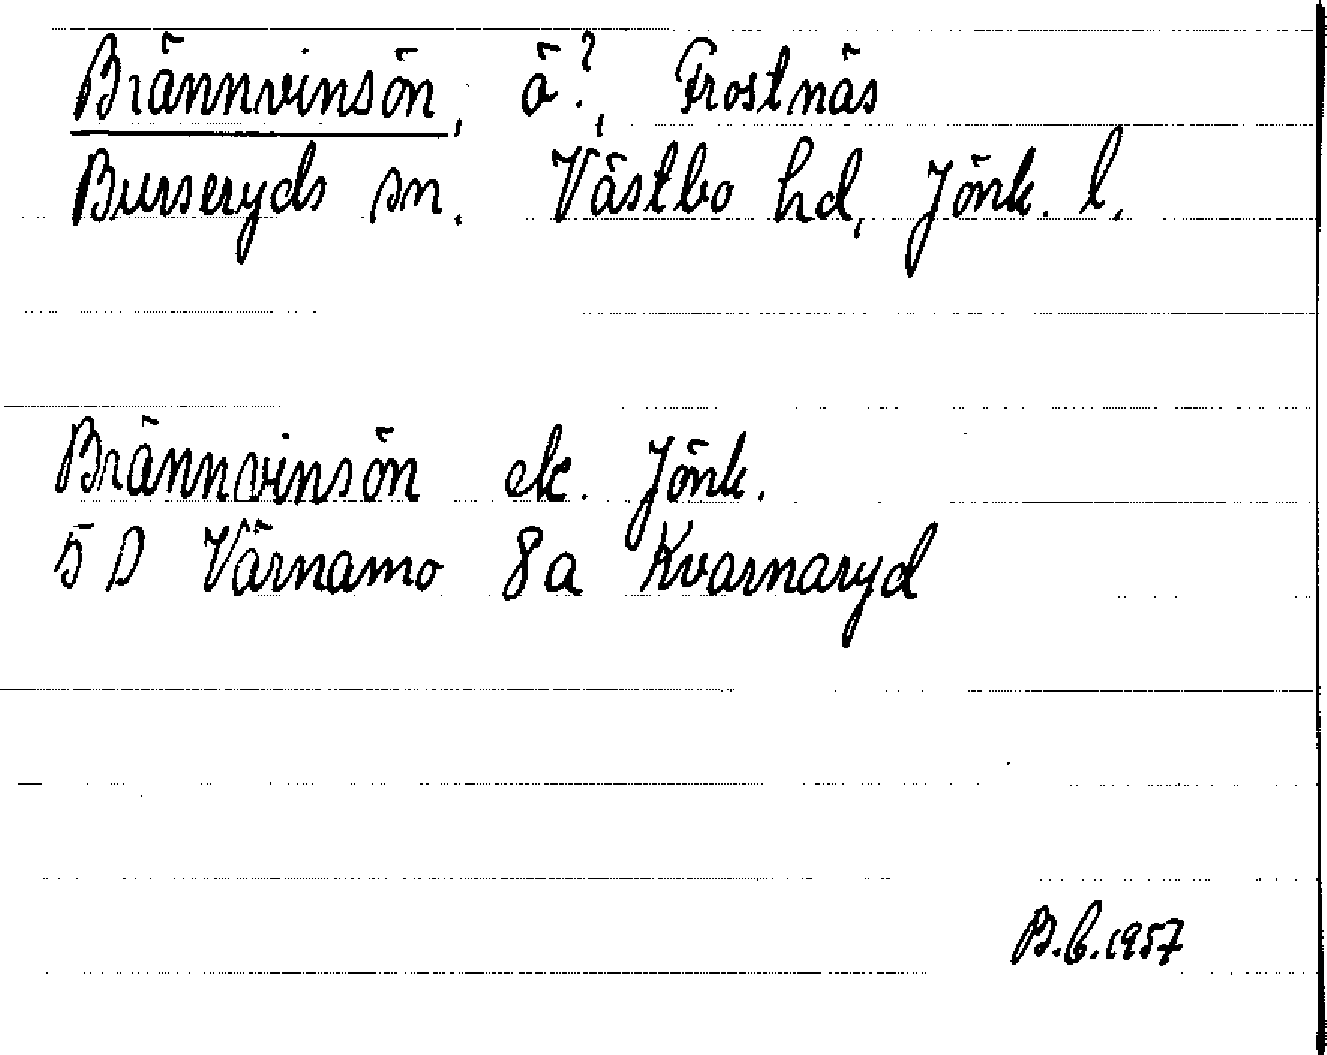 Brännvinsön, ö?, Frostnäs
Burseryds sn. Västbo hd, Jönk. l.
Brännvinsön ek. Jönk.
5 D Värnamo 8a Kvarnaryd
B.b.1957